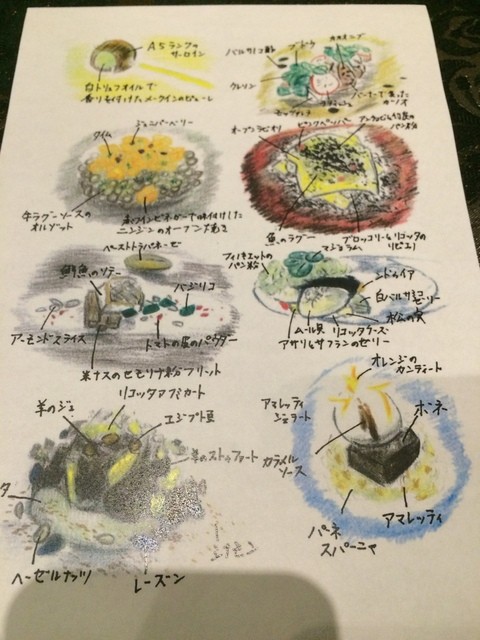 A5ランクの
サーロイン
白トリュフオイルで
香りを付けたメークインのピューレ
バルサミコ酢
ブドウ
クレソン
タイム
ジュニパーベリー
牛ラグーソースの
オルゾット
赤ワインビネガーで味付けした
ニンジンのオーブン焼き
オープンラビオリ
ピンクペッパー
パン粉
魚のラグー
ブロッコリーとリコッタの
マジョラム
ペーストトラパネーゼ
鯛魚のソテー
バジリコ
アーモンドスライス
トマトの皮のパウダー
米ナスのセモリナ粉フリット
パン粉
シドゥイア
白バルサミコゼリー
松の実
ムール貝
リコッタチーズ
アサリとサフランのゼリー
リコッタアフミカート
羊のジュ
エジプト豆
羊のストゥファート
ヘーゼルナッツ
レーズン
オレンジの
カンディート
アマレッティ
ジェラート
ボネ
カラメル
ソース
アマレッティ
パネ
スパーニャ